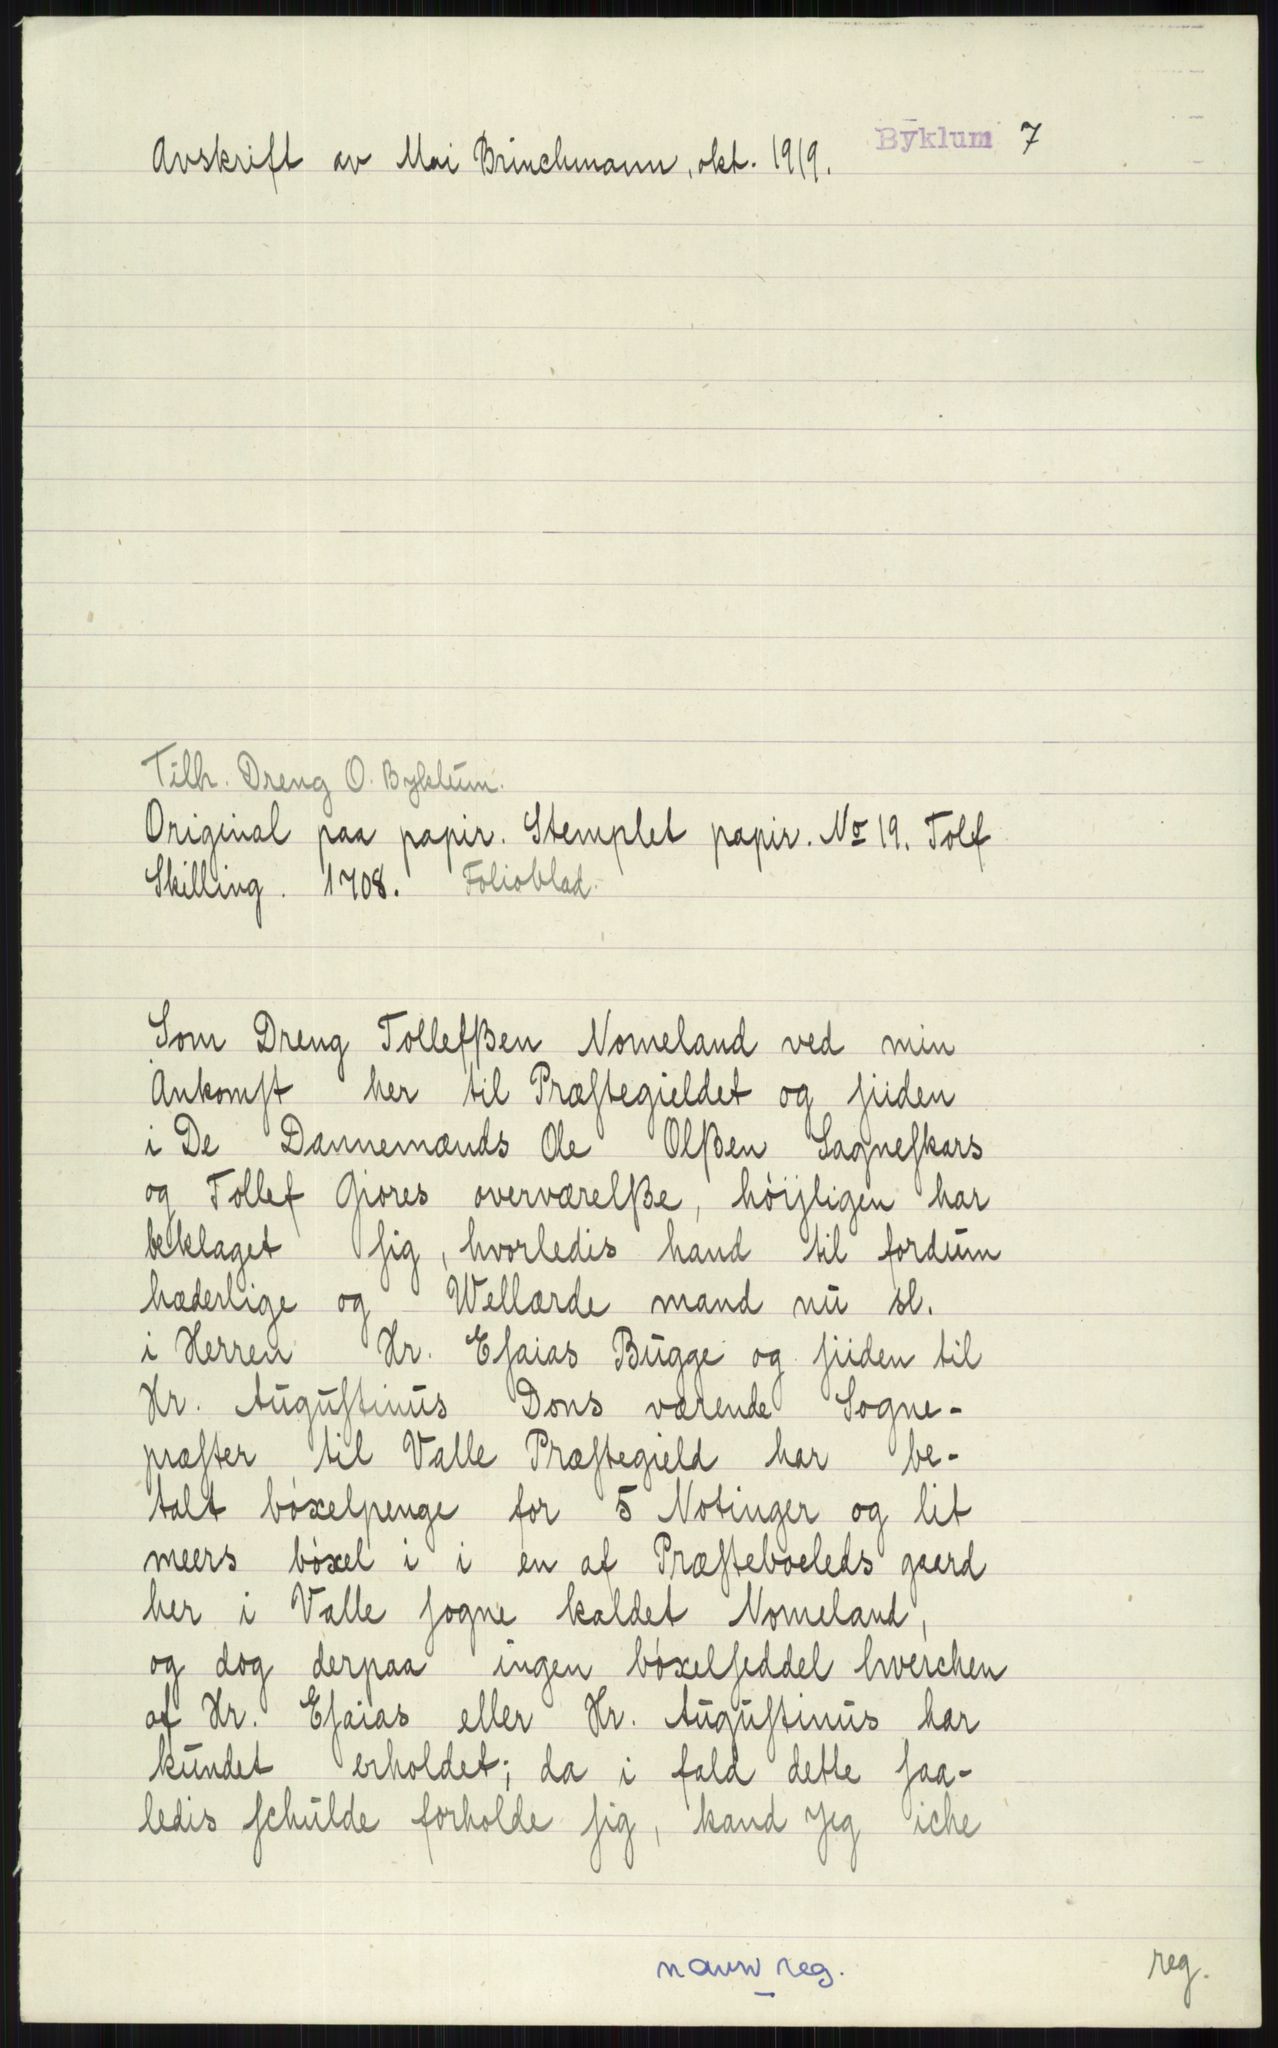 Avskrift av Mai Brinchmann, okt. 1919.
Byklum 7
Tilh. Dreng O. Byklum.
Original paa papir. Stemplet papir. No 19. Tolf
Skilling. 1708. Folioblad.
Som Dreng Tollefßen Nomeland ved min
Ankomſt her til Præſtegieldet og ſiiden
i De Dannemænds Ole Olßen Sagneſkars
og Tollef Giøres overværelße, høijligen har
beklaget ſig, hvorledis hand til fordum
hæderlige og Wellærde mand nu sl.
i Herren Hr. Eſaias Bugge og ſiiden til
Hr. Auguſtinus Dons værende Sogne-
præſter til Valle Præſtegield har be-
talt bøxelpenge for 5 Notinger og lit
meers bøxel i i en af Præſteboeleds gaerd
her i Valle ſogne kaldet Nomeland,
og dog derpaa ingen bøxelſeddel hverchen
af Hr. Eſaias eller Hr. Auguſtinus har
kundet erholdet; da i fald dette ſaa-
ledis ſchulde forholde ſig, kand Jeg iche
navn reg.
reg.